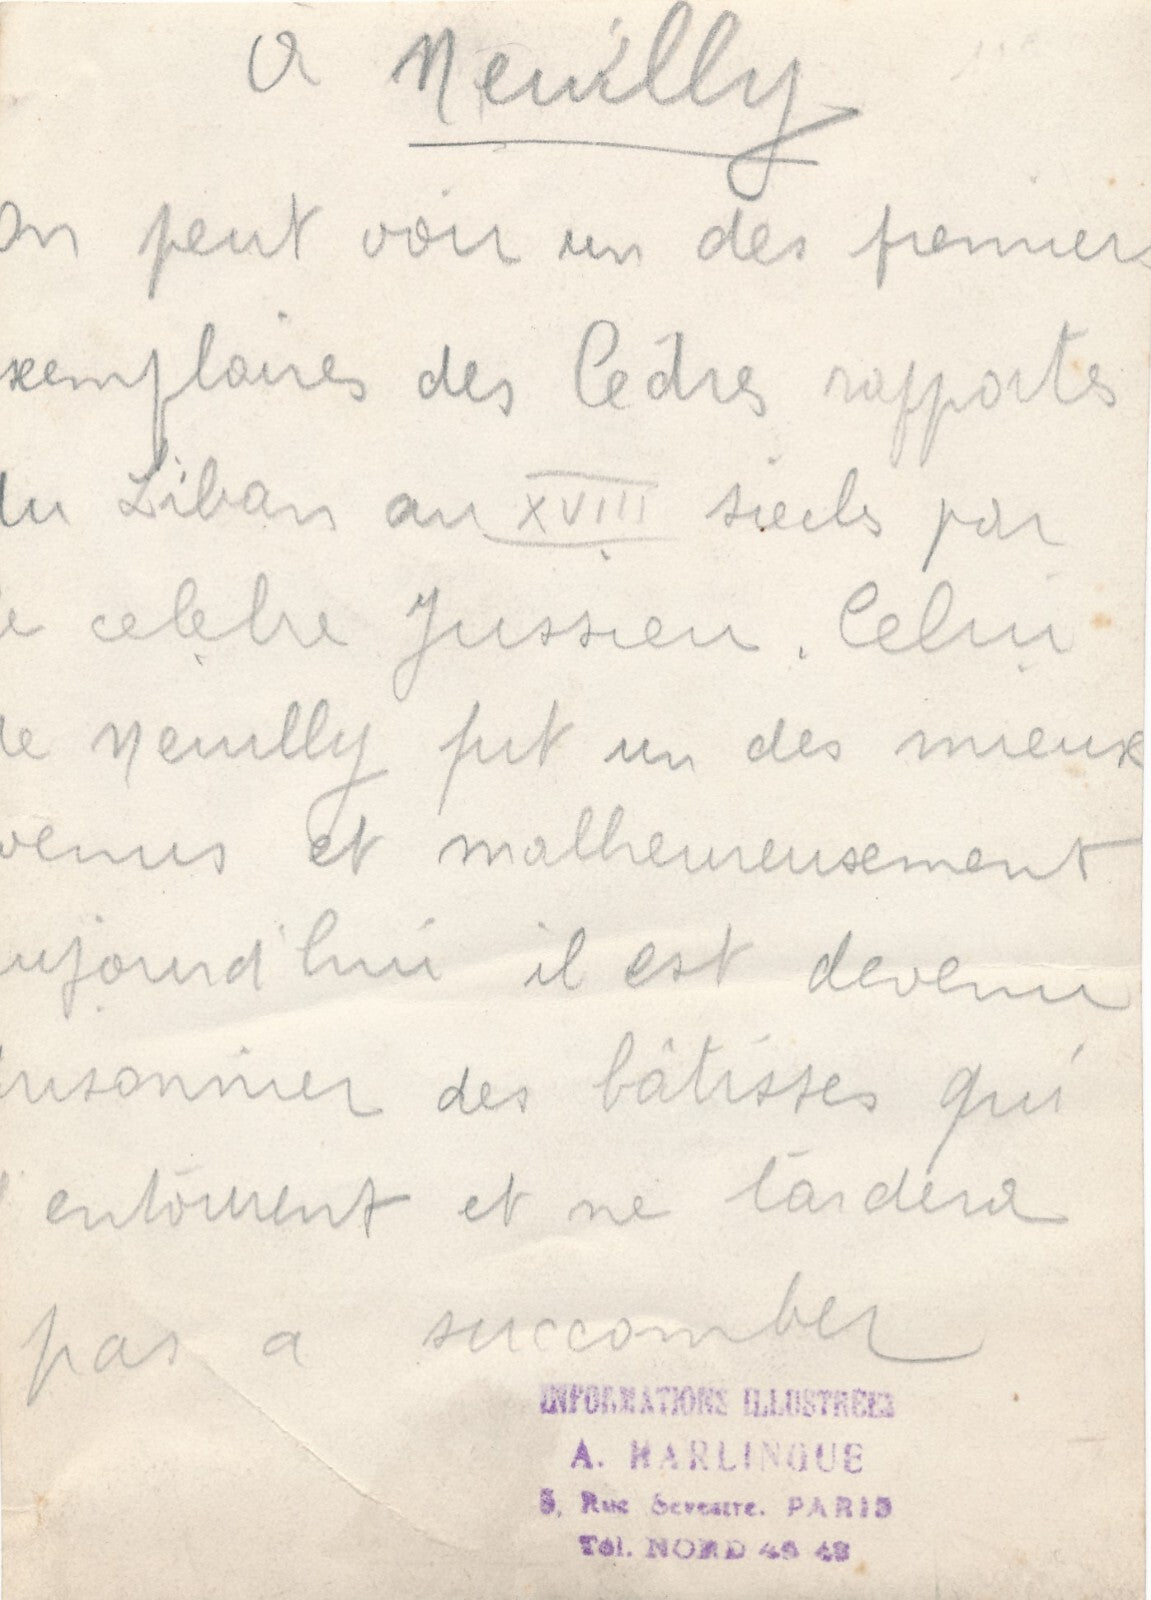 à Neuilly
On peut voir un des premiers
exemplaires des Cèdres rapportes
du Liban au XVIII siecls par
le celebre Jussieu. Celui
de Neuilly fut un des mieux
venus et malheureusement
aujourd'hui il est devenu
prisonnier des bâtisses qui
l'entourent et ne tardera
pas a succomber
INFORMATIONS ILLUSTRÉES
A. HARLINGUE
5, Rue Seveste. PARIS
Tél. NORD 45 43